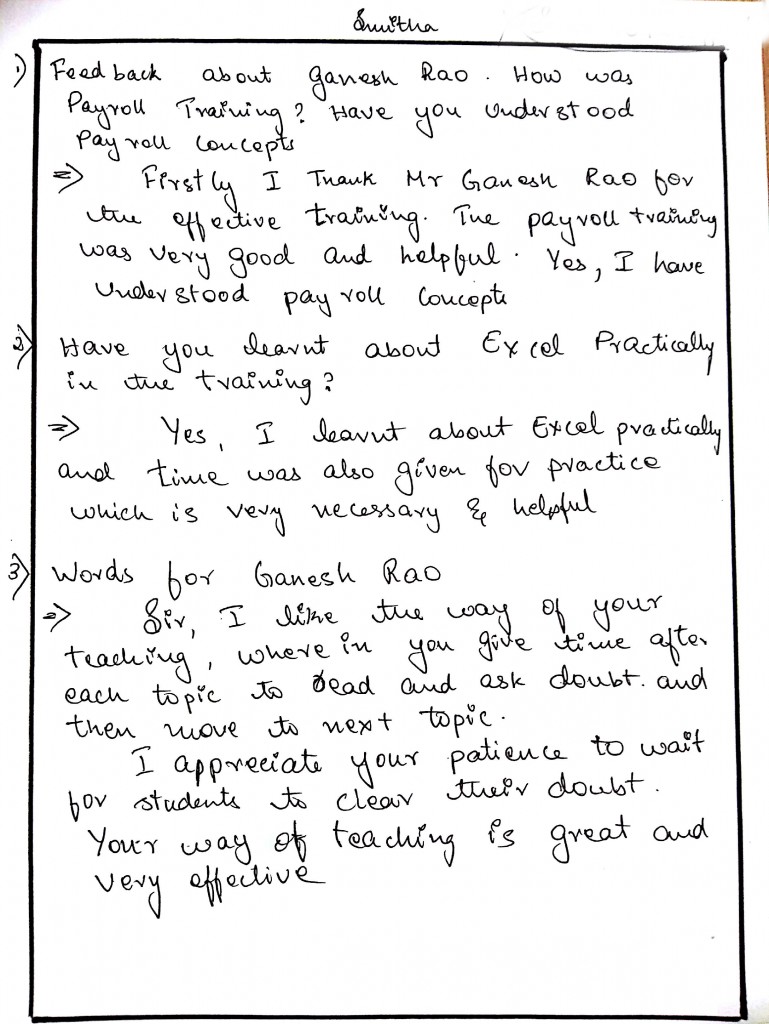 Smitha
1) Feedback about Ganesh Rao. How was
Payroll Training? Have you understood
Payroll Concepts
=> Firstly I Thank Mr Ganesh Rao for
the effective training. The payroll training
was very good and helpful. Yes, I have
understood payroll Concepts
2) Have you learnt about Excel Practically
in the training?
=> Yes, I learnt about Excel practically
and time was also given for practice
which is very necessary & helpful
3) Words for Ganesh Rao
=> Sir, I like the way of your
teaching, where in you give time after
each topic to read and ask doubt. and
then move to next topic.
I appreciate your patience to wait
for students to clear their doubt.
Your way of teaching is great and
very effective